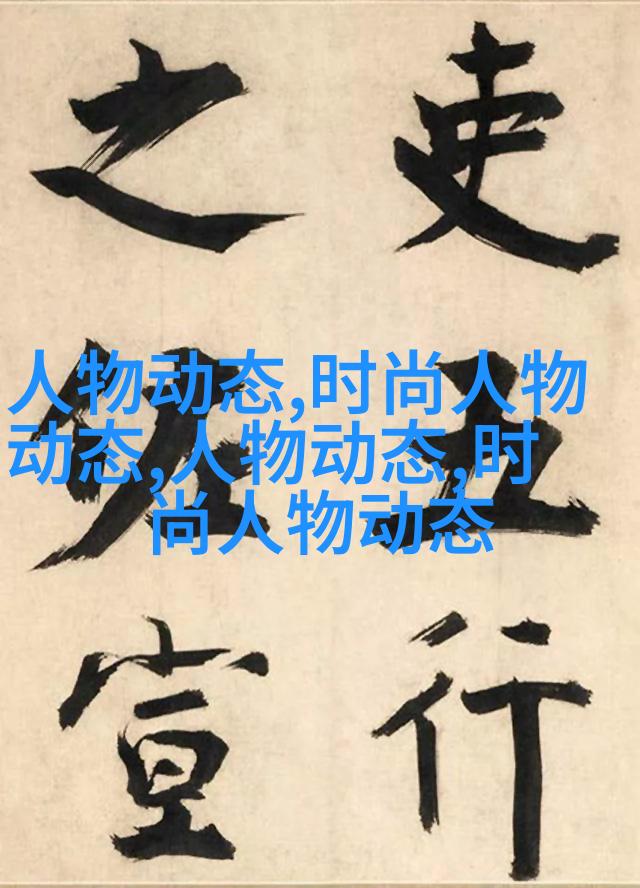 吏五行
之佐宣
人物动态,时尚人物
动态,人物动态,时
尚人物动态